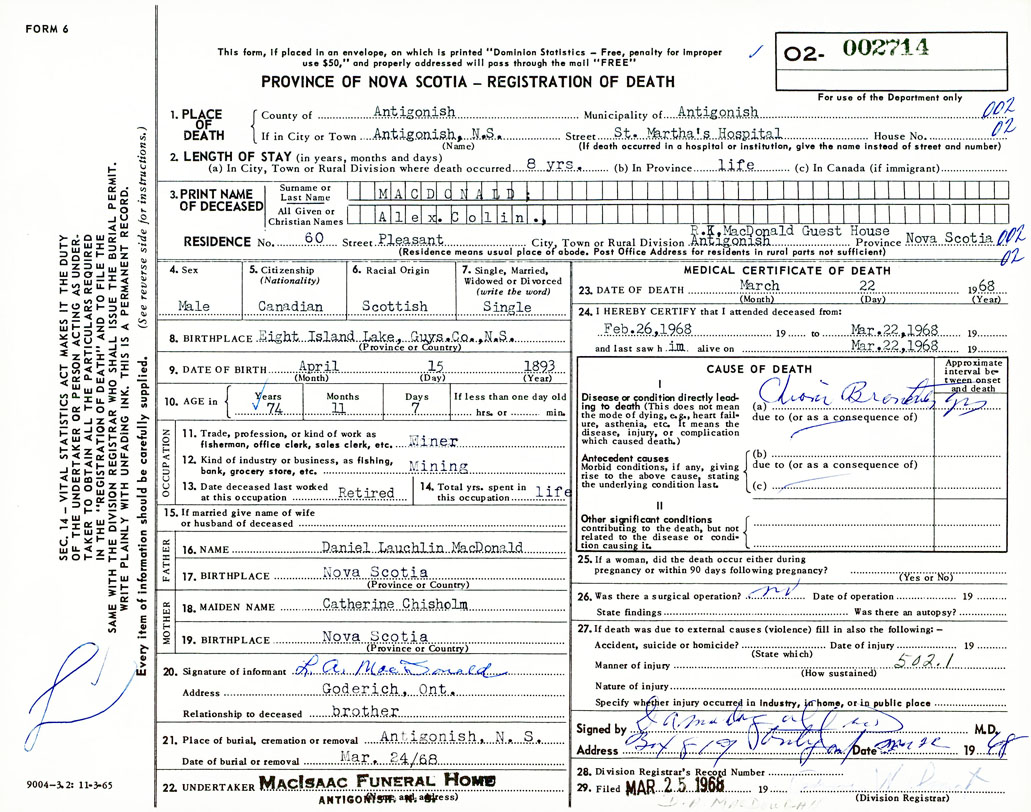 FORM 6
This form, if placed in an envelope, on which is printed "Dominion Statistics – Free, penalty for improper
use $50," and properly addressed will pass through the mail "FREE"
PROVINCE OF NOVA SCOTIA – REGISTRATION OF DEATH
O2- 002714
For use of the Department only
SEC. 14 – VITAL STATISTICS ACT MAKES IT THE DUTY
OF THE UNDERTAKER OR PERSON ACTING AS UNDER-
TAKER TO OBTAIN ALL THE PARTICULARS REQUIRED
IN THE "REGISTRATION OF DEATH" AND TO FILE THE
SAME WITH THE DIVISION REGISTRAR WHO SHALL ISSUE THE BURIAL PERMIT.
WRITE PLAINLY WITH UNFADING INK. THIS IS A PERMANENT RECORD.
Every item of information should be carefully supplied. (See reverse side for instructions.)
1. PLACE OF DEATH
County of Antigonish Municipality of Antigonish 002
If in City or Town Antigonish, N.S. Street St. Martha's Hospital House No. 02
(Name) (If death occurred in a hospital or institution, give the name instead of street and number)
2. LENGTH OF STAY (in years, months and days)
(a) In City, Town or Rural Division where death occurred 8 yrs. (b) In Province life (c) In Canada (if immigrant)
3. PRINT NAME OF DECEASED
Surname or Last Name MACDONALD;
All Given or Christian Names Alex.Colin.,
R.K.MacDonald Guest House
RESIDENCE No. 60 Street Pleasant City, Town or Rural Division Antigonish Province Nova Scotia 002
(Residence means usual place of abode. Post Office Address for residents in rural parts not sufficient) 02
4. Sex
Male
5. Citizenship (Nationality)
Canadian
6. Racial Origin
Scottish
7. Single, Married, Widowed or Divorced (write the word)
Single
8. BIRTHPLACE Eight Island Lake, Guys.Co.,N.S.
(Province or Country)
9. DATE OF BIRTH April 15 1893
(Month) (Day) (Year)
10. AGE in Years Months Days If less than one day old
74 11 7 hrs. or min.
OCCUPATION
11. Trade, profession, or kind of work as
fisherman, office clerk, sales clerk, etc. Miner
12. Kind of industry or business, as fishing,
bank, grocery store, etc. Mining
13. Date deceased last worked at this occupation Retired
14. Total yrs. spent in this occupation life
15. If married give name of wife
or husband of deceased
FATHER
16. NAME Daniel Lauchlin MacDonald
17. BIRTHPLACE Nova Scotia
(Province or Country)
MOTHER
18. MAIDEN NAME Catherine Chisholm
19. BIRTHPLACE Nova Scotia
(Province or Country)
20. Signature of informant L. A. MacDonald
Address Goderich, Ont.
Relationship to deceased brother
21. Place of burial, cremation or removal Antigonish, N. S.
Date of burial or removal Mar. 24/68
22. UNDERTAKER MACISAAC FUNERAL HOME
ANTIGONISH, N. S.
(Name and address)
9004-3.2: 11-3-65
MEDICAL CERTIFICATE OF DEATH
23. DATE OF DEATH March 22 1968
(Month) (Day) (Year)
24. I HEREBY CERTIFY that I attended deceased from:
Feb.26,1968 19 to Mar.22,1968 19
and last saw h im alive on Mar.22,1968 19
CAUSE OF DEATH
Approximate interval between onset and death
I
Disease or condition directly lead-
ing to death (This does not mean
the mode of dying, e.g., heart fail-
ure, asthenia, etc. It means the
disease, injury, or complication
which caused death.)
(a)
due to (or as a consequence of)
Antecedent causes
Morbid conditions, if any, giving
rise to the above cause, stating
the underlying condition last.
(b)
due to (or as a consequence of)
(c)
II
Other significant conditions
contributing to the death, but not
related to the disease or condi-
tion causing it.
25. If a woman, did the death occur either during
pregnancy or within 90 days following pregnancy?
(Yes or No)
26. Was there a surgical operation? no Date of operation 19
State findings Was there an autopsy?
27. If death was due to external causes (violence) fill in also the following: –
Accident, suicide or homicide? Date of injury 19
(State which)
Manner of injury 502.1
(How sustained)
Nature of injury
Specify whether injury occurred in industry, in home, or in public place
Signed by M.D.
Address Box 819 Date 1968
28. Division Registrar's Record Number
29. Filed MAR 25 1968 19
(Division Registrar)